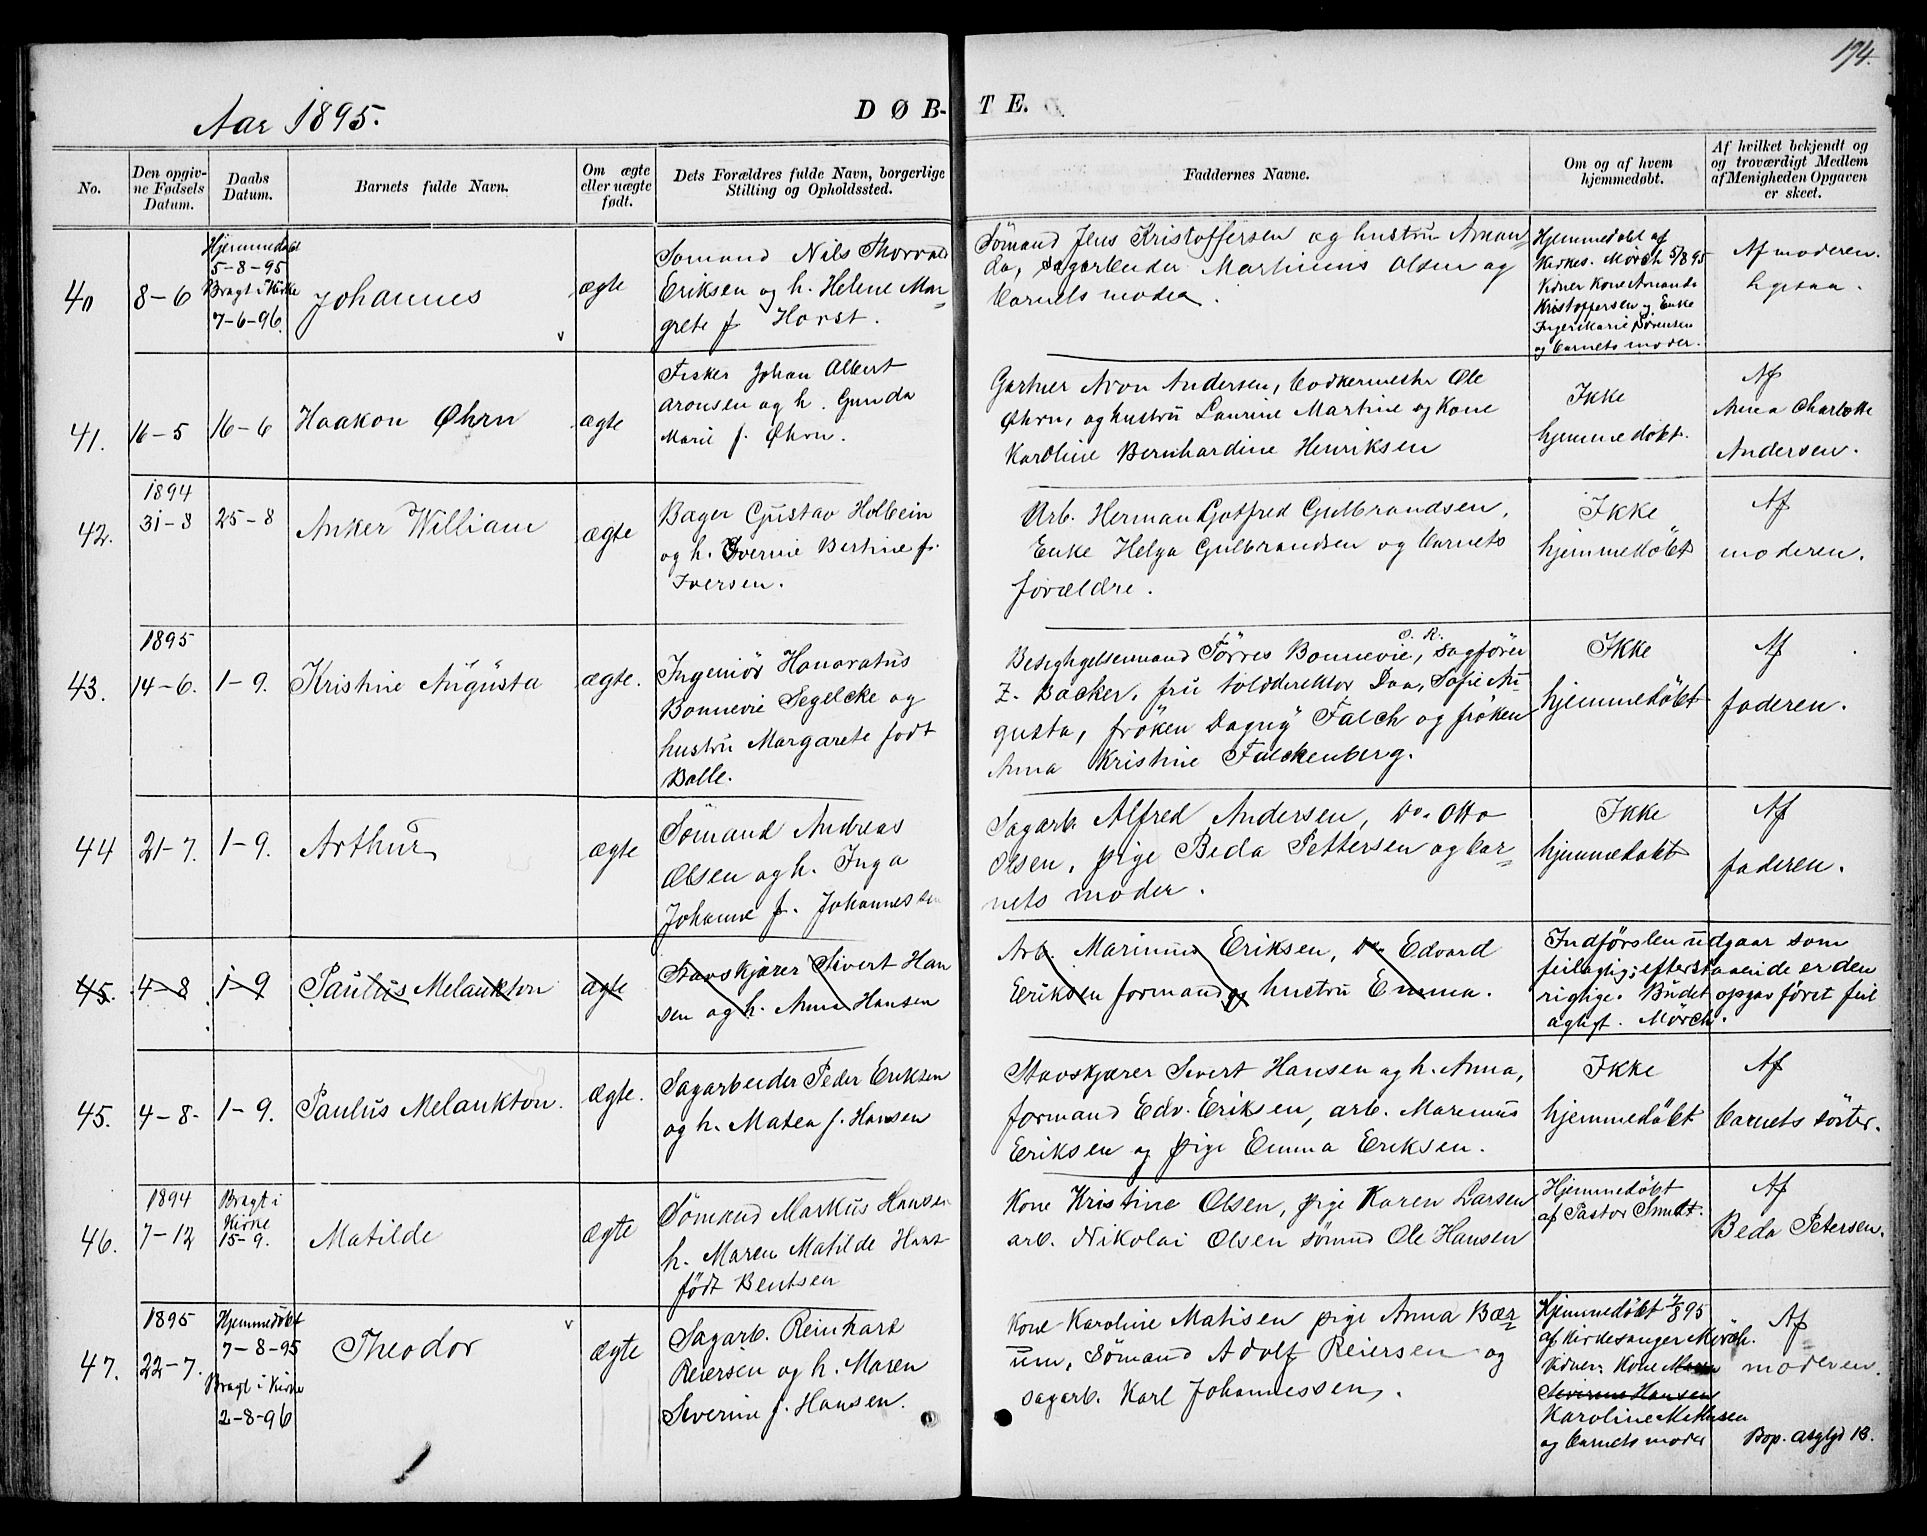 174.
Aar 1895.
DØB-
TE.
No.
Den opgiv-
ne Fødsels
Datum.
Daabs
Datum.
Barnets fulde Navn.
Om ægte
eller uægte
født.
Dets Forældres fulde Navn, borgerlige
Stilling og Opholdssted.
Faddernes Navne.
Om og af hvem
hjemmedøbt.
Af hvilket bekjendt og
og troværdigt Medlem
af Menigheden Opgaven
er skeet.
40
8-6
Hjemmedøbt
5-8-95
Bragt i Kirke
7-6-96.
Johannes
ægte
Sømand Nils Thorvald
Eriksen og h. Helene Mar-
grete f. Horst.
Sömand Jens Kristoffersen og hustru Aman-
da, sagarbeider Martinius Olsen og
barnets moder.
Hjemmedøbt af
Kirkes. Mörch 5/8 95
Vidner Kone Amanda
Kristoffersen og Enke
Ingerikarie Sörensen
og barnets moder.
Af moderen.
41.
16-5
16-6
Haakon Øhrn
ægte
Fisker Johan Albert
Aronsen og h. Gunda
Marie f. Øhrn.
Gartner Aron Andersen, bødkermester Ole
Øhrn, og hustru Laurine Martine og Kone
Karoline Bernhardine Henriksen
Ikke
hjemmedøbt.
Af
Anna Charlotte
Andersen.
42.
1894
31-8
25-8
Anker William
ægte
Bager Gustav Holbein
og h. Iverine Bertine f.
Iversen.
Arb. Herman Gotfred Gulbrandsen,
Enke Helga Gulbrandsen og barnets
forældre.
Ikke
hjemmedöbt
Af
moderen.
43.
1895
14-6.
1-9.
Kristine Augusta
ægte.
Ingeniør Honoratus
Bonnevie Segelcke og
hustru Margarete født
Balle.
O. R.
Besigtigelsesmand Törres Bonnevie, sagförer
Z. Backer, fru tolddirektör Daa, Sofie Au-
gusta, frøken Dagny Falch og frøken
Anna Kristine Falckenberg.
Ikke
hjemmedöbt
Af
faderen.
44
21-7.
1-9.
Arthur
ægte
Sömand Andreas
Olsen og h. Inga
Johanne f. Johannessen
Sagarb. Alfred Andersen, do. Otto
Olsen, pige Beda Pettersen og bar-
nets moder.
Ikke
hjemmedøbt
Af
faderen.
45.
4-8
1-9
Paulus Melankton
ægte
Stavskjærer Sivert Han
sen og h. Anna Hansen
Arb. Marinius Eriksen, do Edvard
Eriksen formand og hustru Emma.
Indförslen udgaar som
feilagtig; efterstaaende er den
rigtige. Budet opgav föret feil
agtigt. Mörch.
45.
4-8-
1-9.
Paulus Melankton.
ægte.
Sagarbeider Peder Eriksen
og h. Matea f. Hansen
Stavskjærer Sivert Hansen og h. Anna,
formand Edv. Eriksen, arb. Marinius
Eriksen og pige Emma Eriksen.
Ikke
hjemmedöbt
Af
barnets söster.
46.
1894
7-12
Bragt i
Kirke
15-9.
Matilde
ægte
Sömand Markus Hansen
h. Maren Matilde Hans
födt Bentsen
Kone Kristine Olsen, pige Karen Larsen
arb. Nikolai Olsen sömnd Ole Hansen
Hjemmedöbt
af Pastor Smidt.
Af
Beda Petersen.
47.
1895
22-7.
Hjemmedöbt
7-8-95
Bragt i Kirke
2-8-96
Theodor
ægte
Sagarb. Reinhart
Reiersen og h. Maren
Severine f. Hansen.
Kone Karoline Matisen pige Anna Bær-
um, Sömand Adolf Reiersen og
sagarb. Karl Johannessen.
Hjemmedöbt 7/8 95
af Kirkesanger Mörch.
Vidner: Kone Maren
Severine Hansen
Karoline Mathisen
og barnets moder
Af
moderen.
Bop. Asylgd 13.